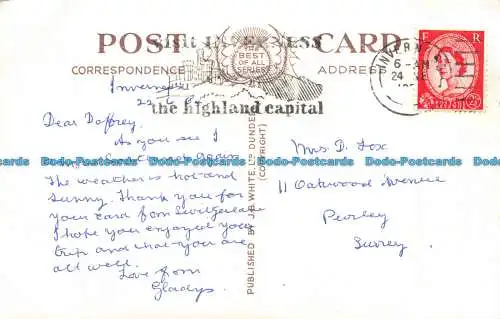 POST CARD
THE BEST OF ALL SERIES
CORRESPONDENCE ADDRESS
visit INVERNESS
the highland capital
INVERN
6 - AM
24
E R
PUBLISHED BY J.B. WHITE, LTD DUNDEE
(COPYRIGHT)
Inverness
22
Dear Daffrey
As you see I
again
The weather is hot and
sunny. Thank you for
your card from Switzerland
I hope you enjoyed your
trip and that you are
all well.
Love from
Gladys.
Mrs. D. Fox
11 Oakwood Avenue
Purley
Surrey
Dodo-Postcards Dodo-Postcards Dodo-Postcards Dodo-Postcards Dodo-Postcards